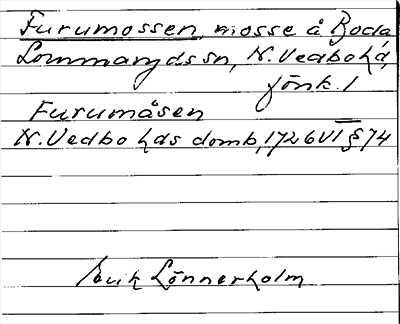 Furumossen, mosse å Boda
Lommaryds sn, N. Vedbo hd,
Jönk. l
Furumåsen
N. Vedbo hds domb, 1726 VI § 74
Erik Lönnerholm